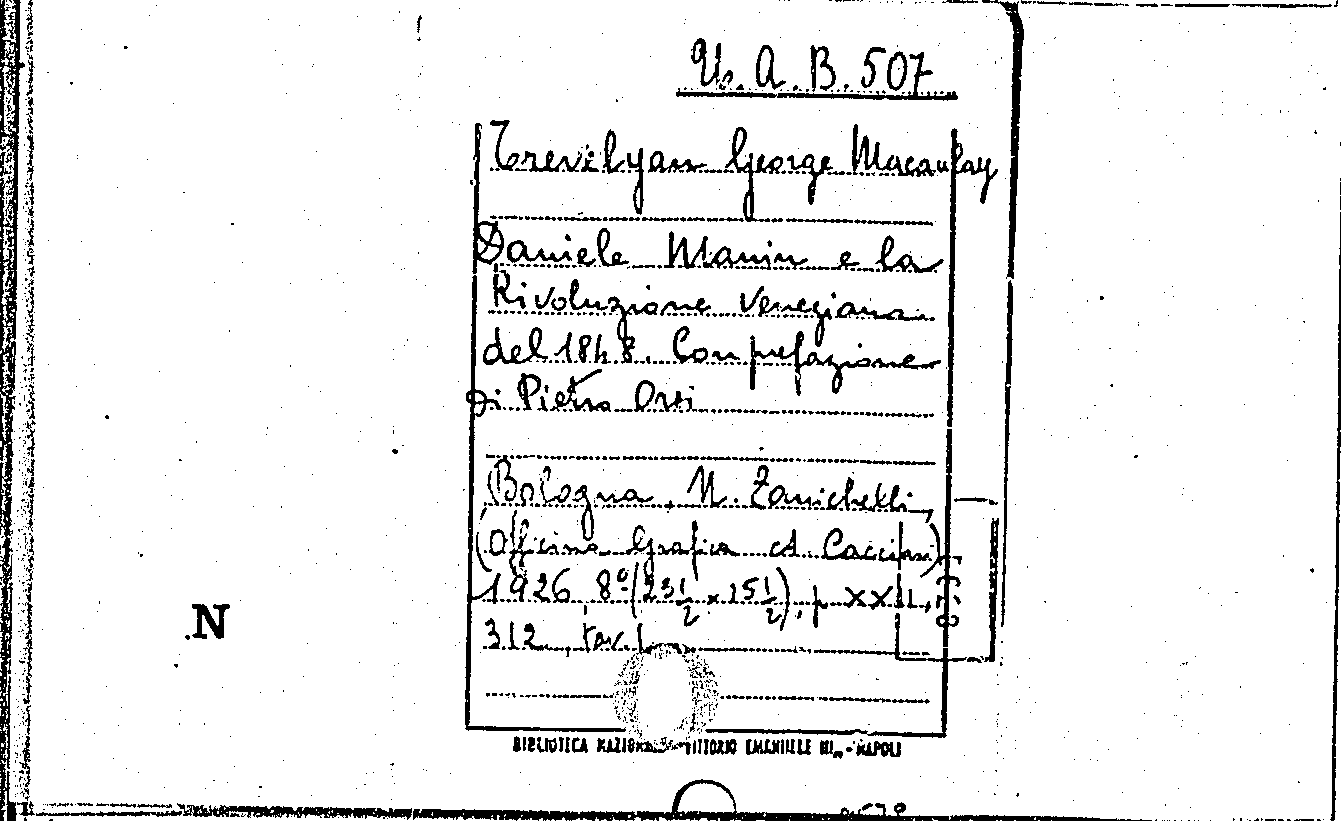 U. A. B. 507
Trevelyan George Macaulay
Daniele Manin e la
Rivoluzione Veneziana
del 1848. Con prefazione
di Pietro Orsi
Bologna, N. Zanichelli,
(Officina Grafica A. Cacciari)
1926 8º (23½ x 15½), p. XXII,
312 tav. 1
N
BIBLIOTECA NAZIONALE VITTORIO EMANUELE III - NAPOLI